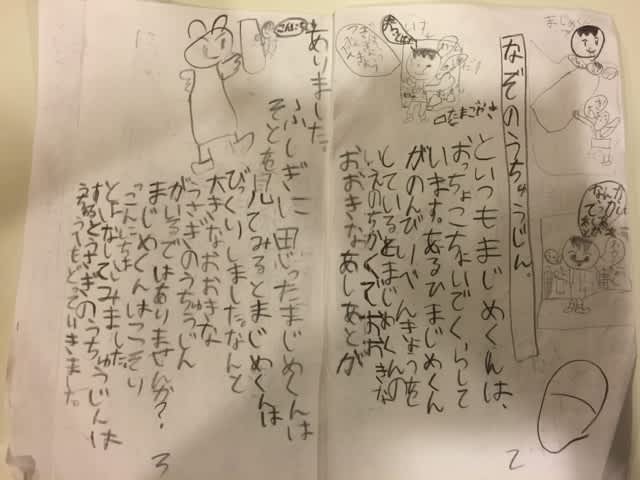 まじめくん
なんか
でっかい
なぞのうちゅうじん。
といつもまじめくんは、
おっちょこちょいでくらして
います。あるひまじめくん
がのんびりべんきょうを
としているとまじめくんの
いえのちかくでおおきな
おおきなあしあとが
2
ありました。
ふしぎに思ったまじめくんは
そとを見てみるとまじめくんは
びっくりしました。なんと
大きなおおきな
うさぎのうちゅうじん
がいるではありませんか?
まじめくんはこっそり
「こんにちは
とはなしてみました。
するとうさぎのうちゅうじんは
3